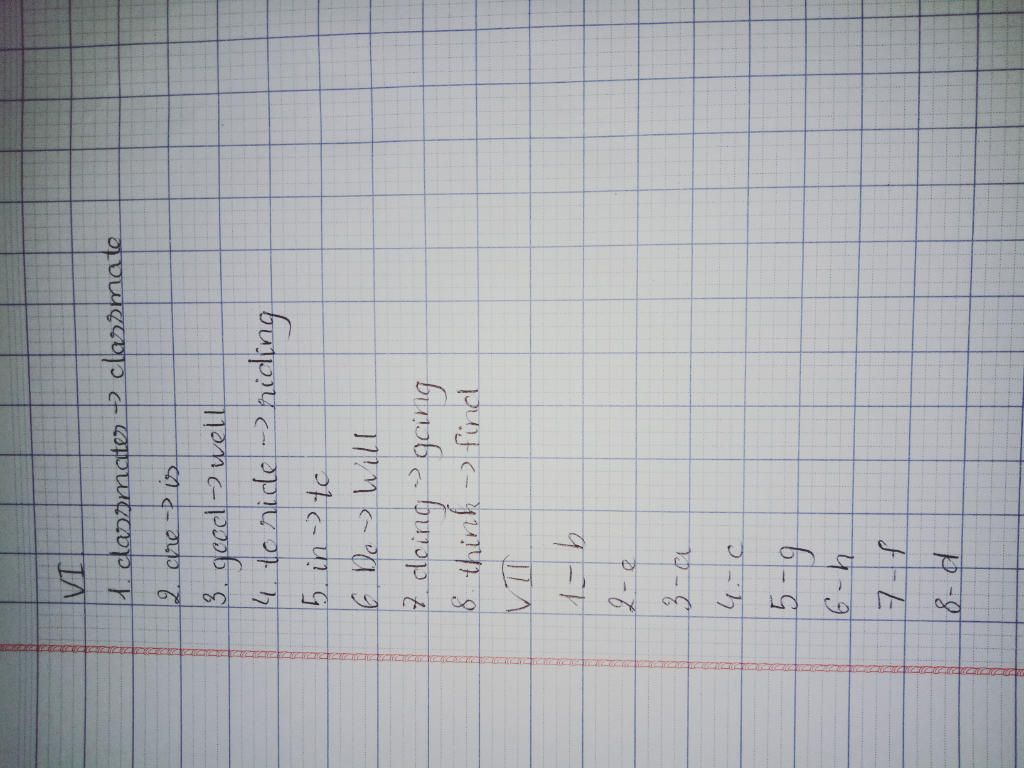 VI
1. classmates -> classmate
2. are -> is
3. good -> well
4. to ride -> riding
5. in -> to
6. Do -> Will
7. doing -> going
8. think -> find
VII
1 - b
2 - e
3 - a
4 - c
5 - g
6 - h
7 - f
8 - d